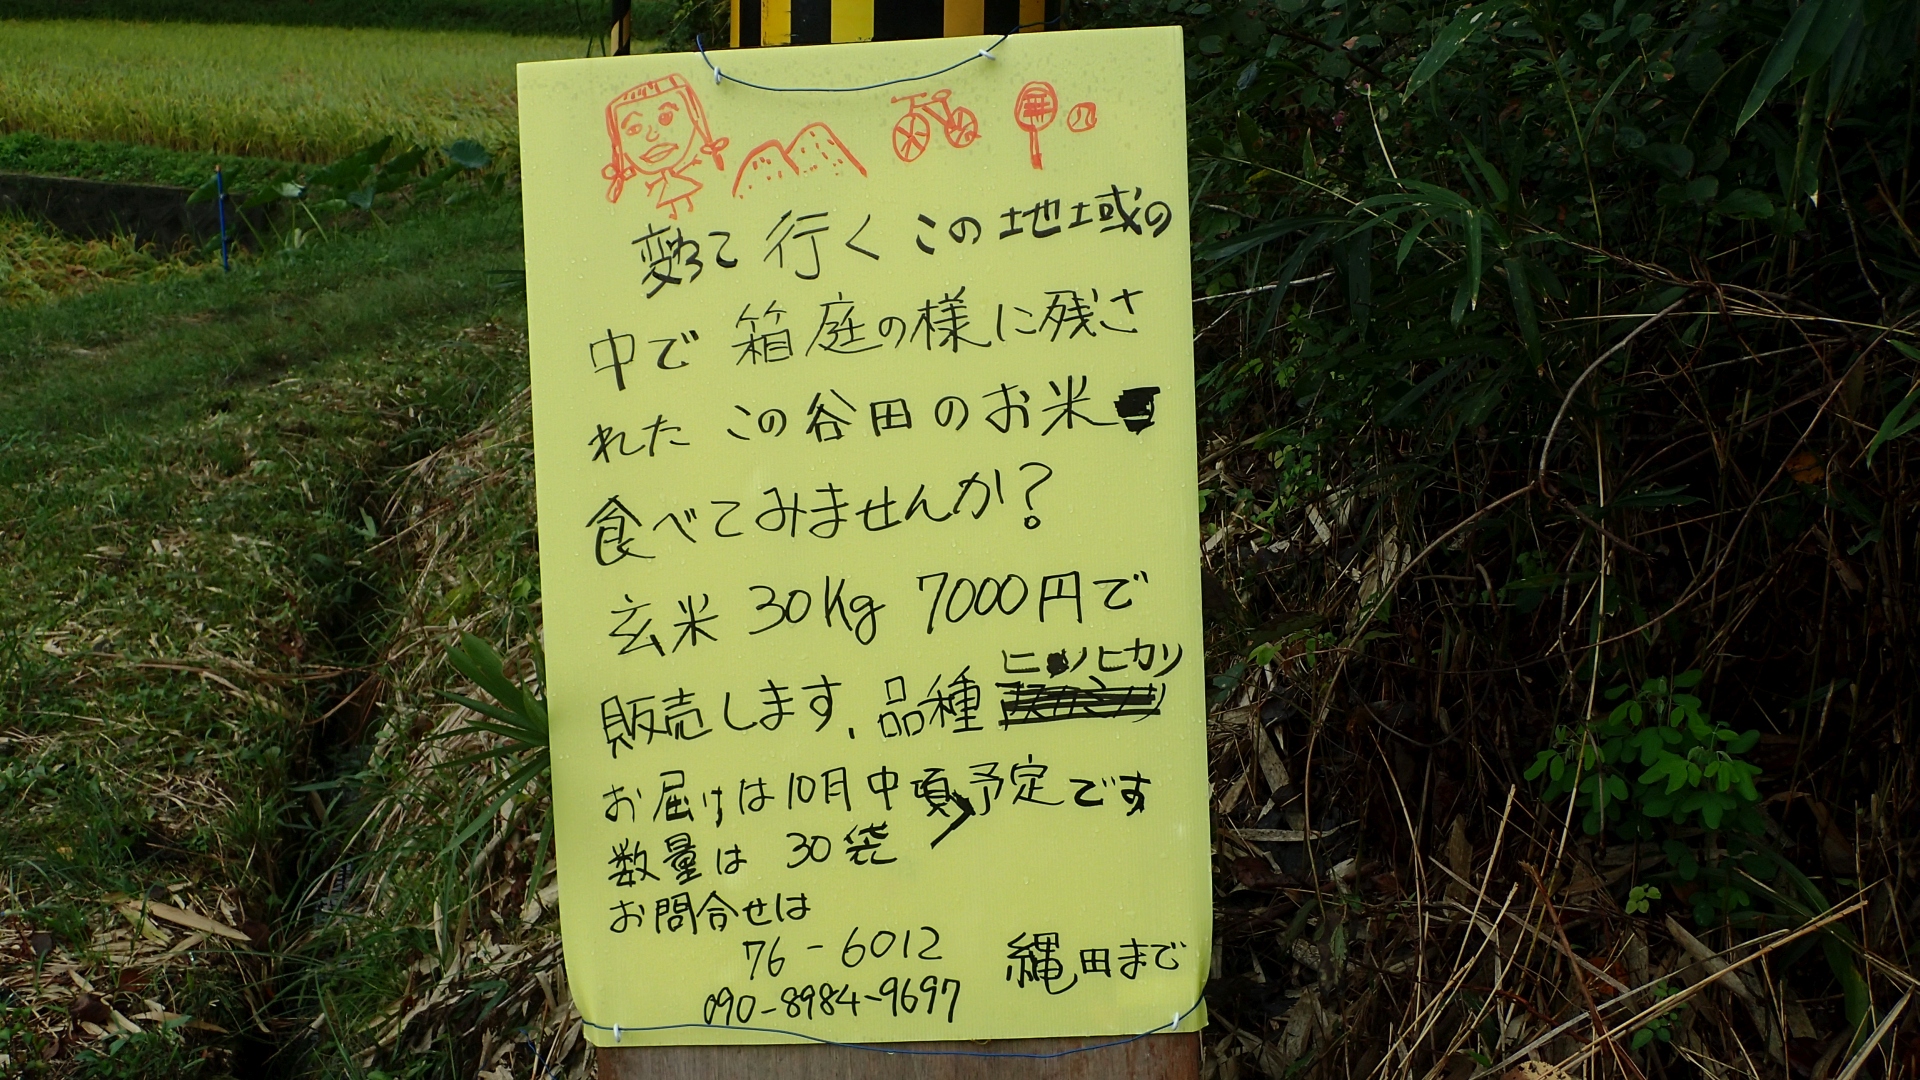 変わって行くこの地域の
中で箱庭の様に残さ
れたこの谷田のお米
食べてみませんか?
玄米 30Kg 7000円で
販売します.品種 ヒノヒカリ
お届けは10月中頃予定です
数量は 30袋
お問合せは
76-6012
090-8984-9697
縄田まで